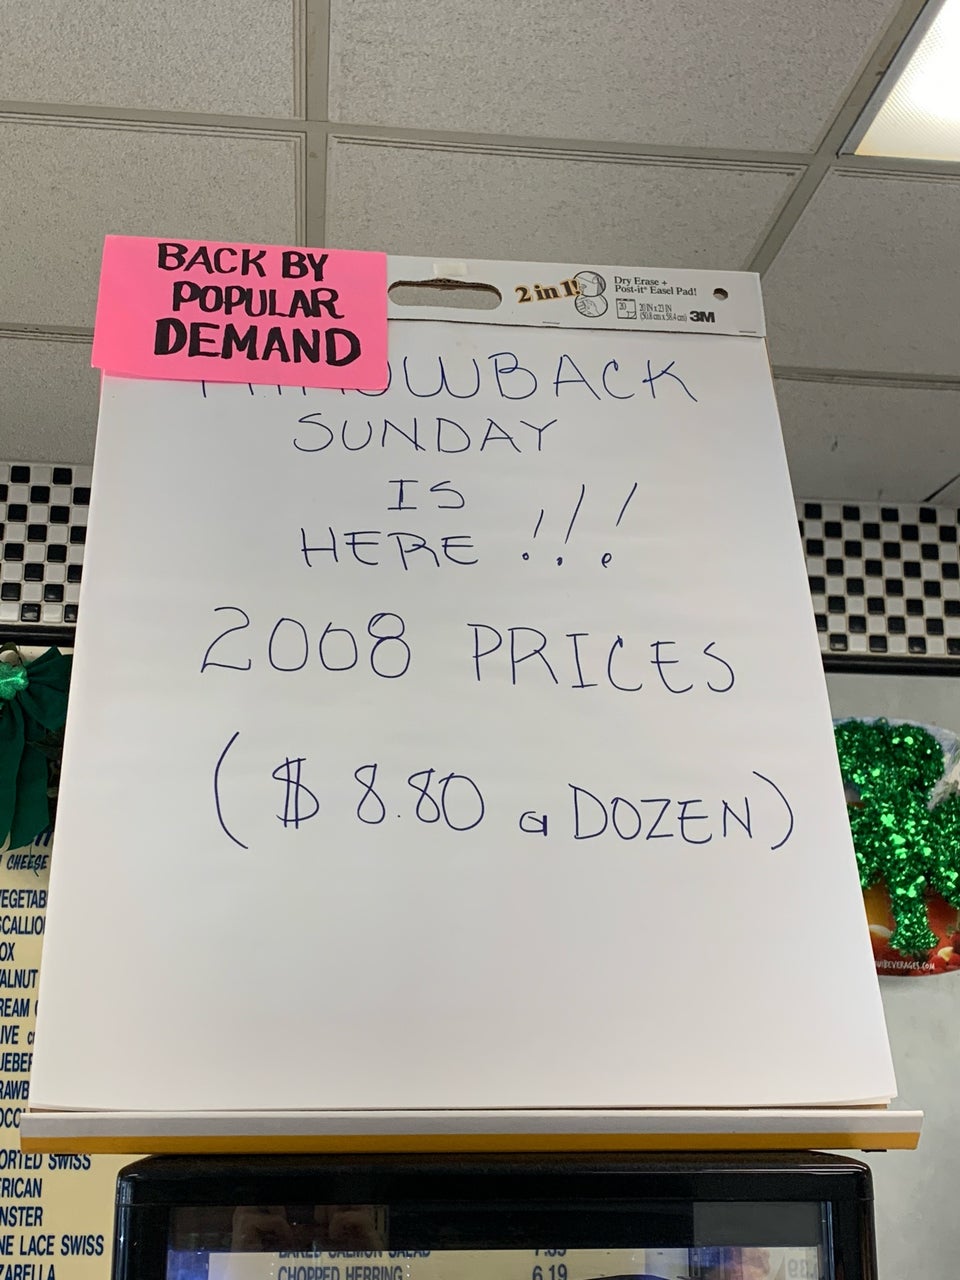 BACK BY
POPULAR
DEMAND
2 in 1!
Dry Erase +
Post-it® Easel Pad!
20
20 IN x 23 IN
(50.8 cm x 58.4 cm)
3M
THROWBACK
SUNDAY
IS
HERE !!!
2008 PRICES
($ 8.80 a DOZEN)
CHEESE
EGETAB
SCALLIO
OX
ALNUT
REAM
IVE
UEBER
RAWB
OCC
ORTED SWISS
RICAN
NSTER
NE LACE SWISS
ZARELLA
BAKED SALMON SALAD
CHOPPED HERRING 6.19